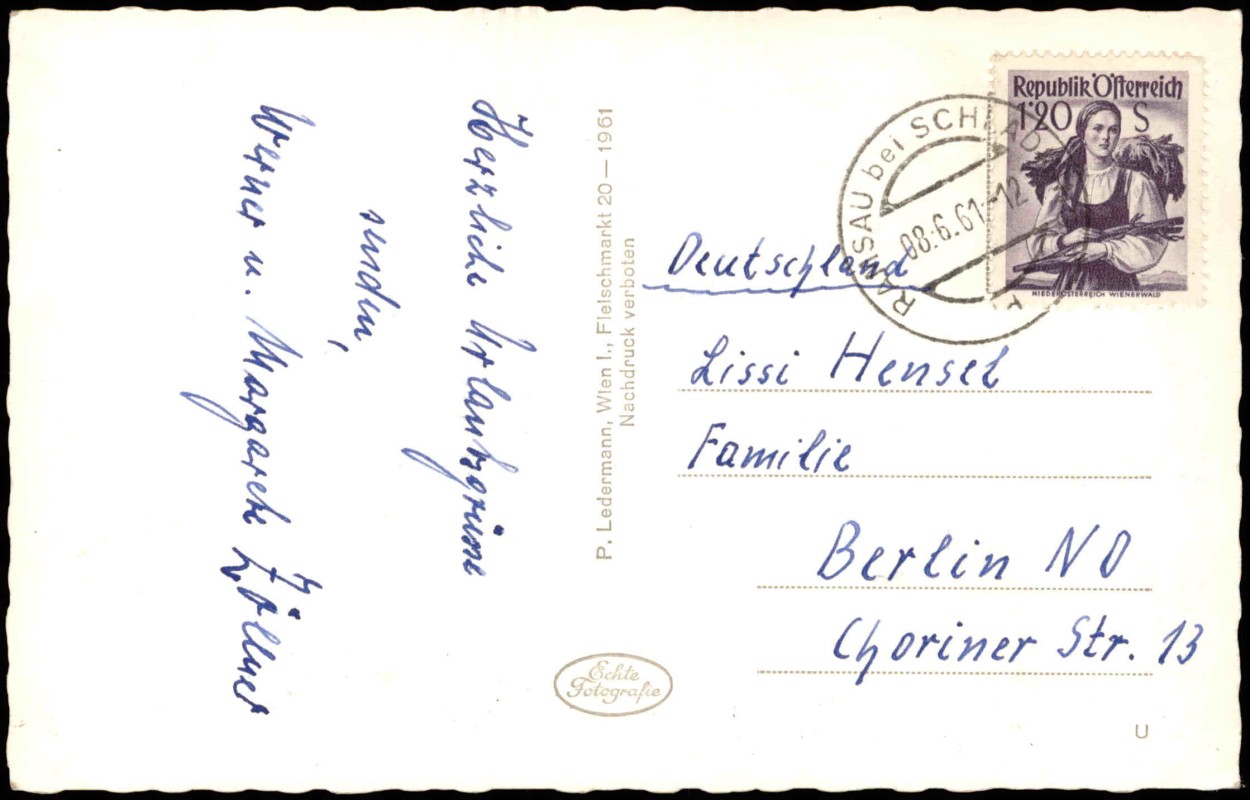 Herzliche Urlaubsgrüsse
senden,
Werner u. Margarete Zöllner
P. Ledermann, Wien I., Fleischmarkt 20 — 1961
Nachdruck verboten
Echte
Fotografie
Republik Österreich
1·20 S
NIEDERÖSTERREICH WIENERWALD
RAMSAU bei SCHLADM
08.6.61-12
Deutschland
Lissi Hensel
Familie
Berlin NO
Choriner Str. 13
U